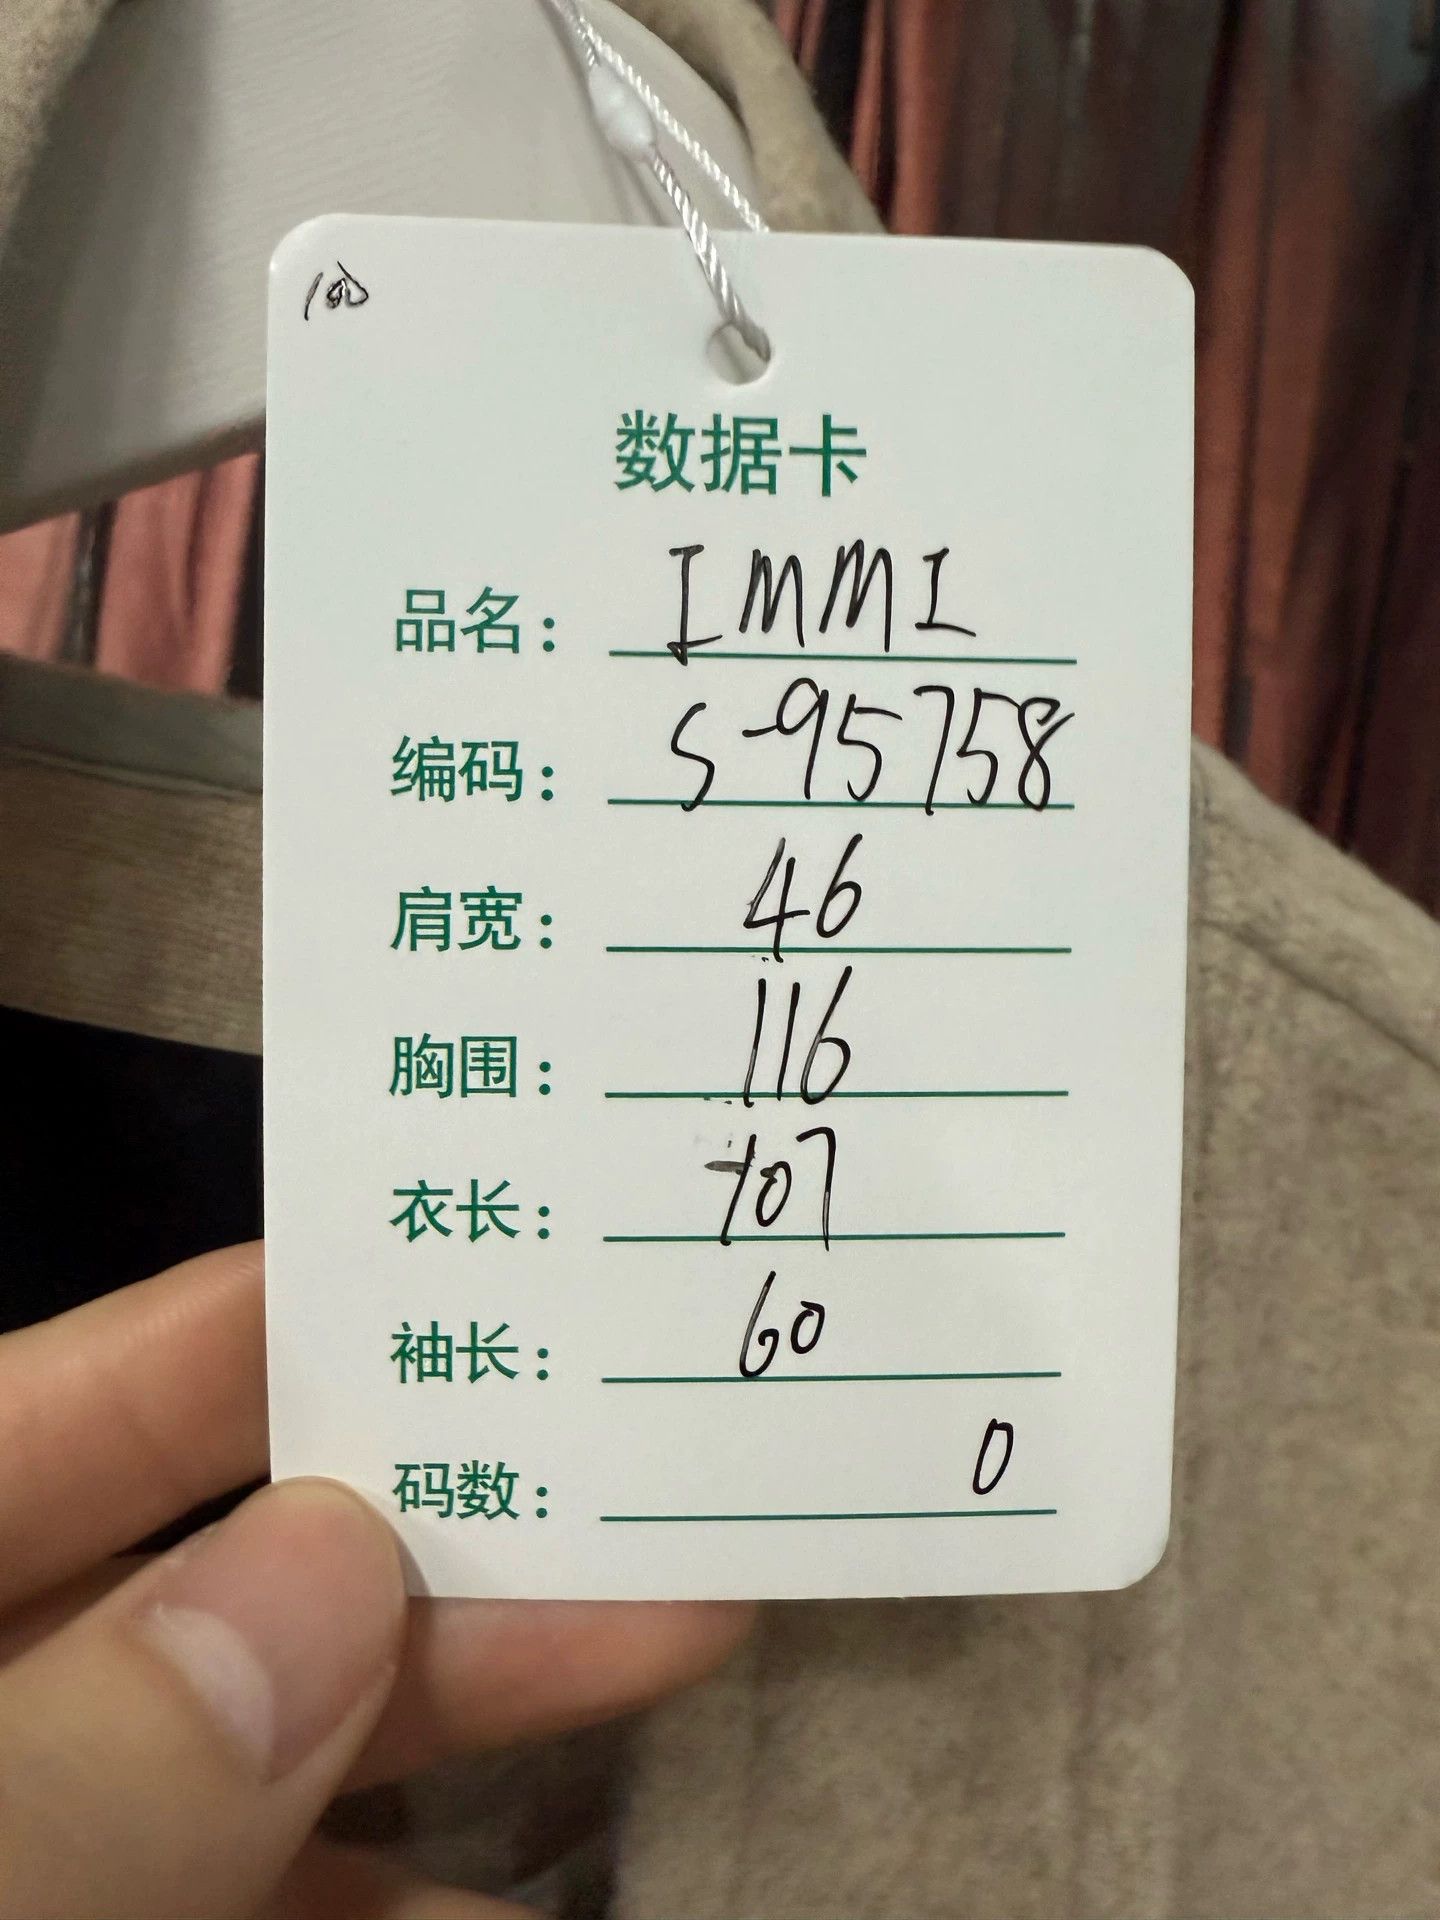 100
数据卡
品名： IMMI
编码： S-95758
肩宽： 46
胸围： 116
衣长： 107
袖长： 60
码数： 0